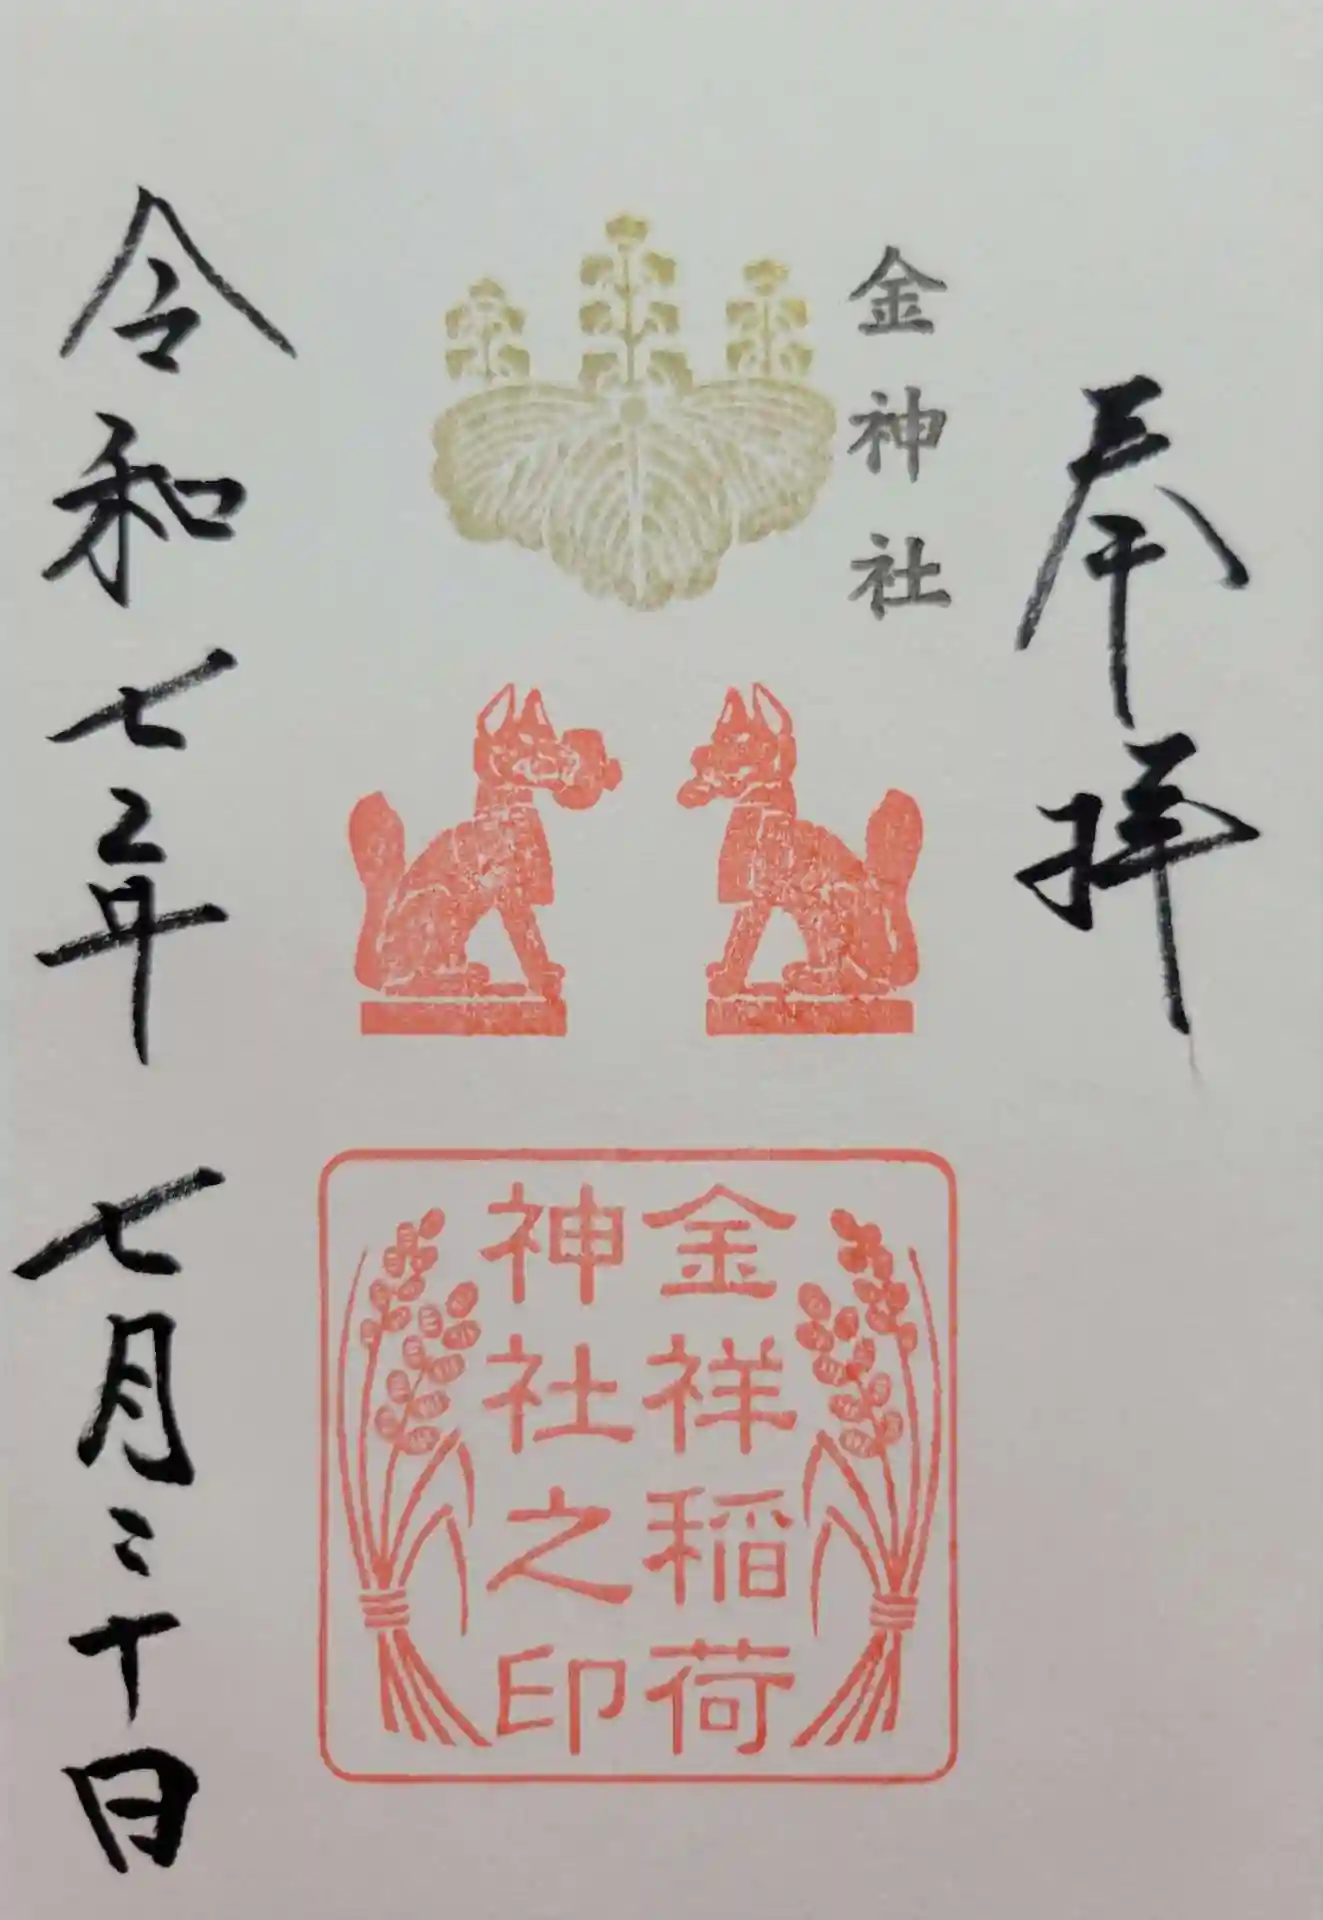 奉拝
金神社
金祥稲荷
神社之印
令和七年七月三十日